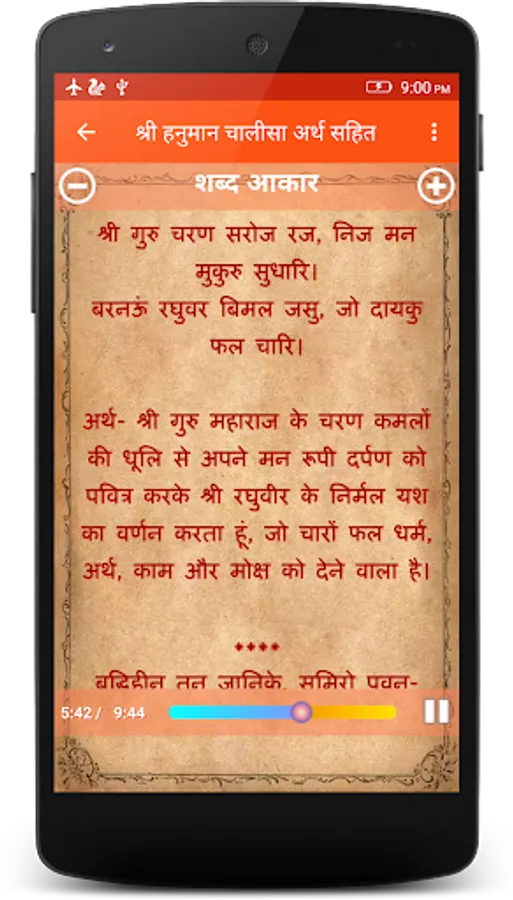 9:00 PM
श्री हनुमान चालीसा अर्थ सहित
शब्द आकार
श्री गुरु चरण सरोज रज, निज मन
मुकुरु सुधारि।
बरनऊं रघुवर बिमल जसु, जो दायकु
फल चारि।
अर्थ- श्री गुरु महाराज के चरण कमलों
की धूलि से अपने मन रूपी दर्पण को
पवित्र करके श्री रघुवीर के निर्मल यश
का वर्णन करता हूं, जो चारों फल धर्म,
अर्थ, काम और मोक्ष को देने वाला है।
****
बुद्धिहीन तनु जानिके, सुमिरो पवन-
5:42 / 9:44